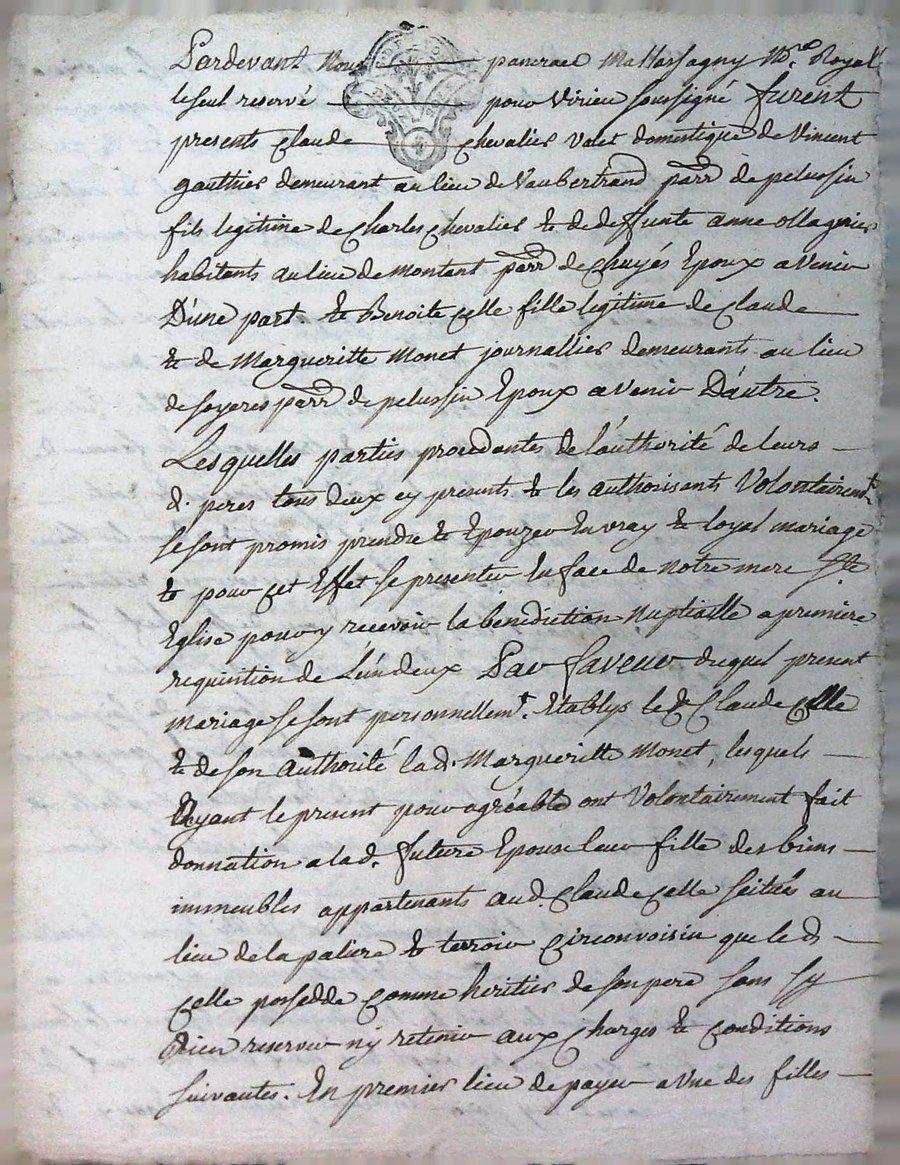 Pardevant Nous pancrace Mattassagny No.re Royal
le seul reservé pour Virieu soussigné furent
presents Claude Chevalier valet domestique de Vincent
gauthier demeurant au lieu de Vaubertrand parr de pelussin
fils legitime de Charles Chevalier & de deffunte anne ollagnier
habitants au lieu de montant parr de Chuyés Epoux avenir
D'une part. & Benoite Celle fille legitime de Claude
& de Margueritte Monet journallier demeurants au lieu
de soyeres parr de pelussin Epoux avenir D'autre.
Lesquelles parties procedantes de l'authorité de leurs
d. peres tous deux cy presents & les authorisants Volontairemt
se sont promis prendre & Epouzer En vray & loyal mariage
& pour cet Effet se presenter En face de notre mere Ste
Eglise pour y recevoir la benediction Nuptialle a premiere
requisition de L'un deux Par faveur duquel present
mariage se sont personnellemt. Etablys le d Claude Celle
& de son authorité la d. Margueritte Monet, lesquels
Ayant le present pour agréable ont Volontairement fait
donnation a la d. future Epouse leur fille des biens
immeubles appartenants aud. Claude Celle scitués au
lieu de la paliere & terroir Circonvoisin que le d
Celle possedde Comme heritier de son pere sans sy
Rien reserver n'y retenir aux Charges & Conditions
suivantes. En premier lieu de payer a Une des filles